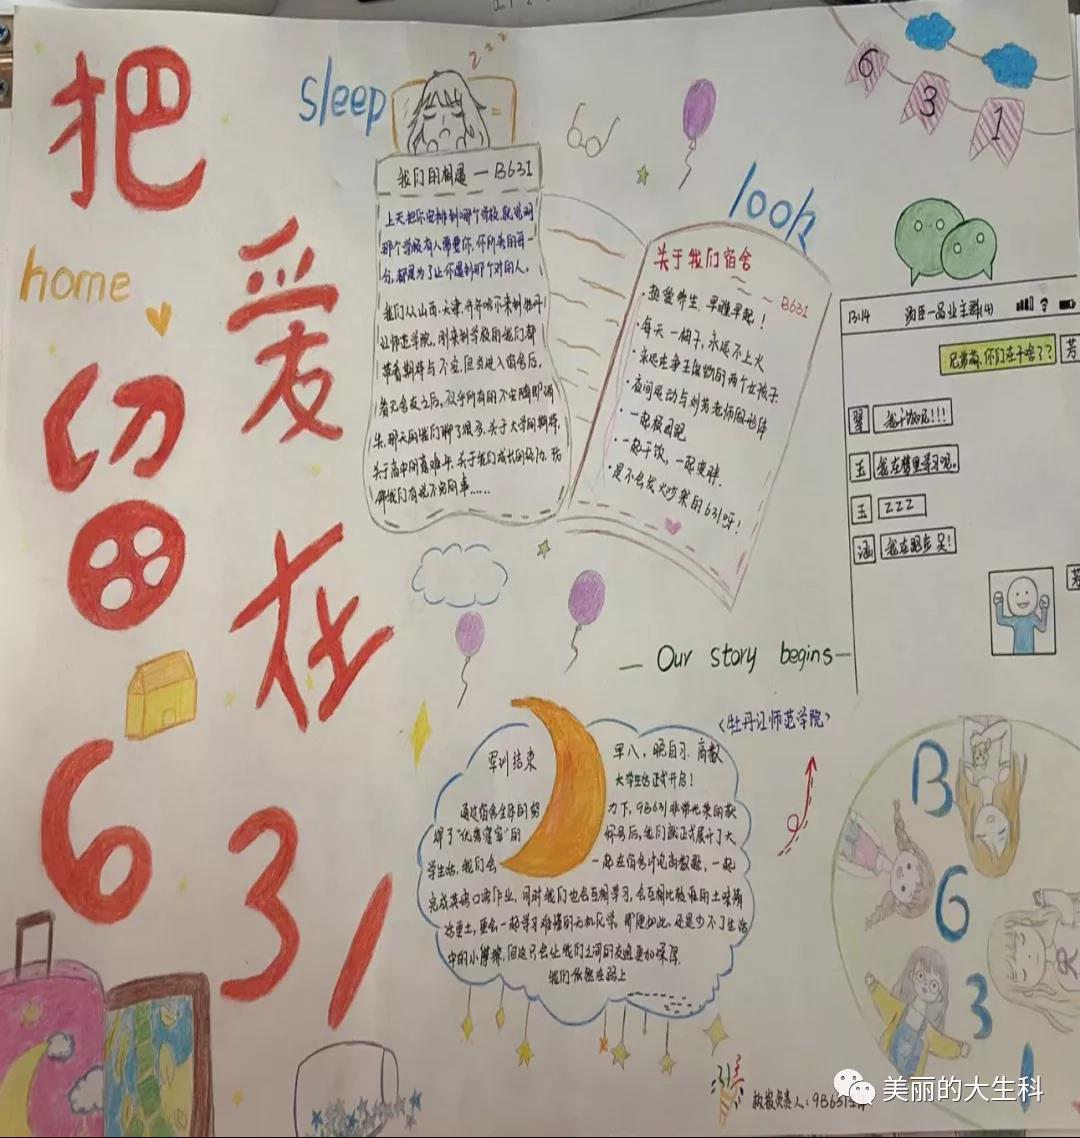 把爱留在631
sleep
home
look
631
我们的相遇一B631
上天把你安排到哪个学校，就说明
那个学校有人需要你，你所丢的每一
分，都是为了让你遇到那个对的人。
我们从山西、天津、齐齐哈尔来到牡丹
江师范学院，刚来到学校的我们都
带着期待与不安，但当进入宿舍后，
看见舍友之后，似乎所有的不安随即消
失，那天的我们聊了很多，关于大学的期待，
关于高中的艰难与，关于我们成长的经历，仿
佛我们有说不完的事......
关于我们宿舍
一B631
·热爱养生，早睡早起！
·每天一柚子，永远不上火
·永远在争王俊的两个女孩子
·夜间运动与刘芳老师同形体
·一起校园跑
·一起干饭，一起变胖.
·是不会发火吵架的631呀！
13:14
一品业主群(4)
兄弟萌，你们在干啥了？
芳
翠
我干饭呢!!!
玉
我在梦里学习呢。
玉
zzz
涵
我在跑步 吴！
— Our story begins—
<牡丹江师范学院>
军训结束
早八，晚自习，高数
大学生活正式开启！
通过宿舍全体的努力下，9B631非常光荣的获
得了“优秀寝室”的称号后，我们就正式展开了大
学生活，我们会一起在宿舍讨论高数题，一起
完成英语口语作业，同时我们也会互相学习，会互相比较谁的土味情
话更土，更会一起学习难懂的无机化学。即便如此，还是少不了生活
中的小摩擦，但这只会让我们之间的友谊更加深厚.
我们依然在路上
B631
板报负责人：9B631全体
美丽的大生科